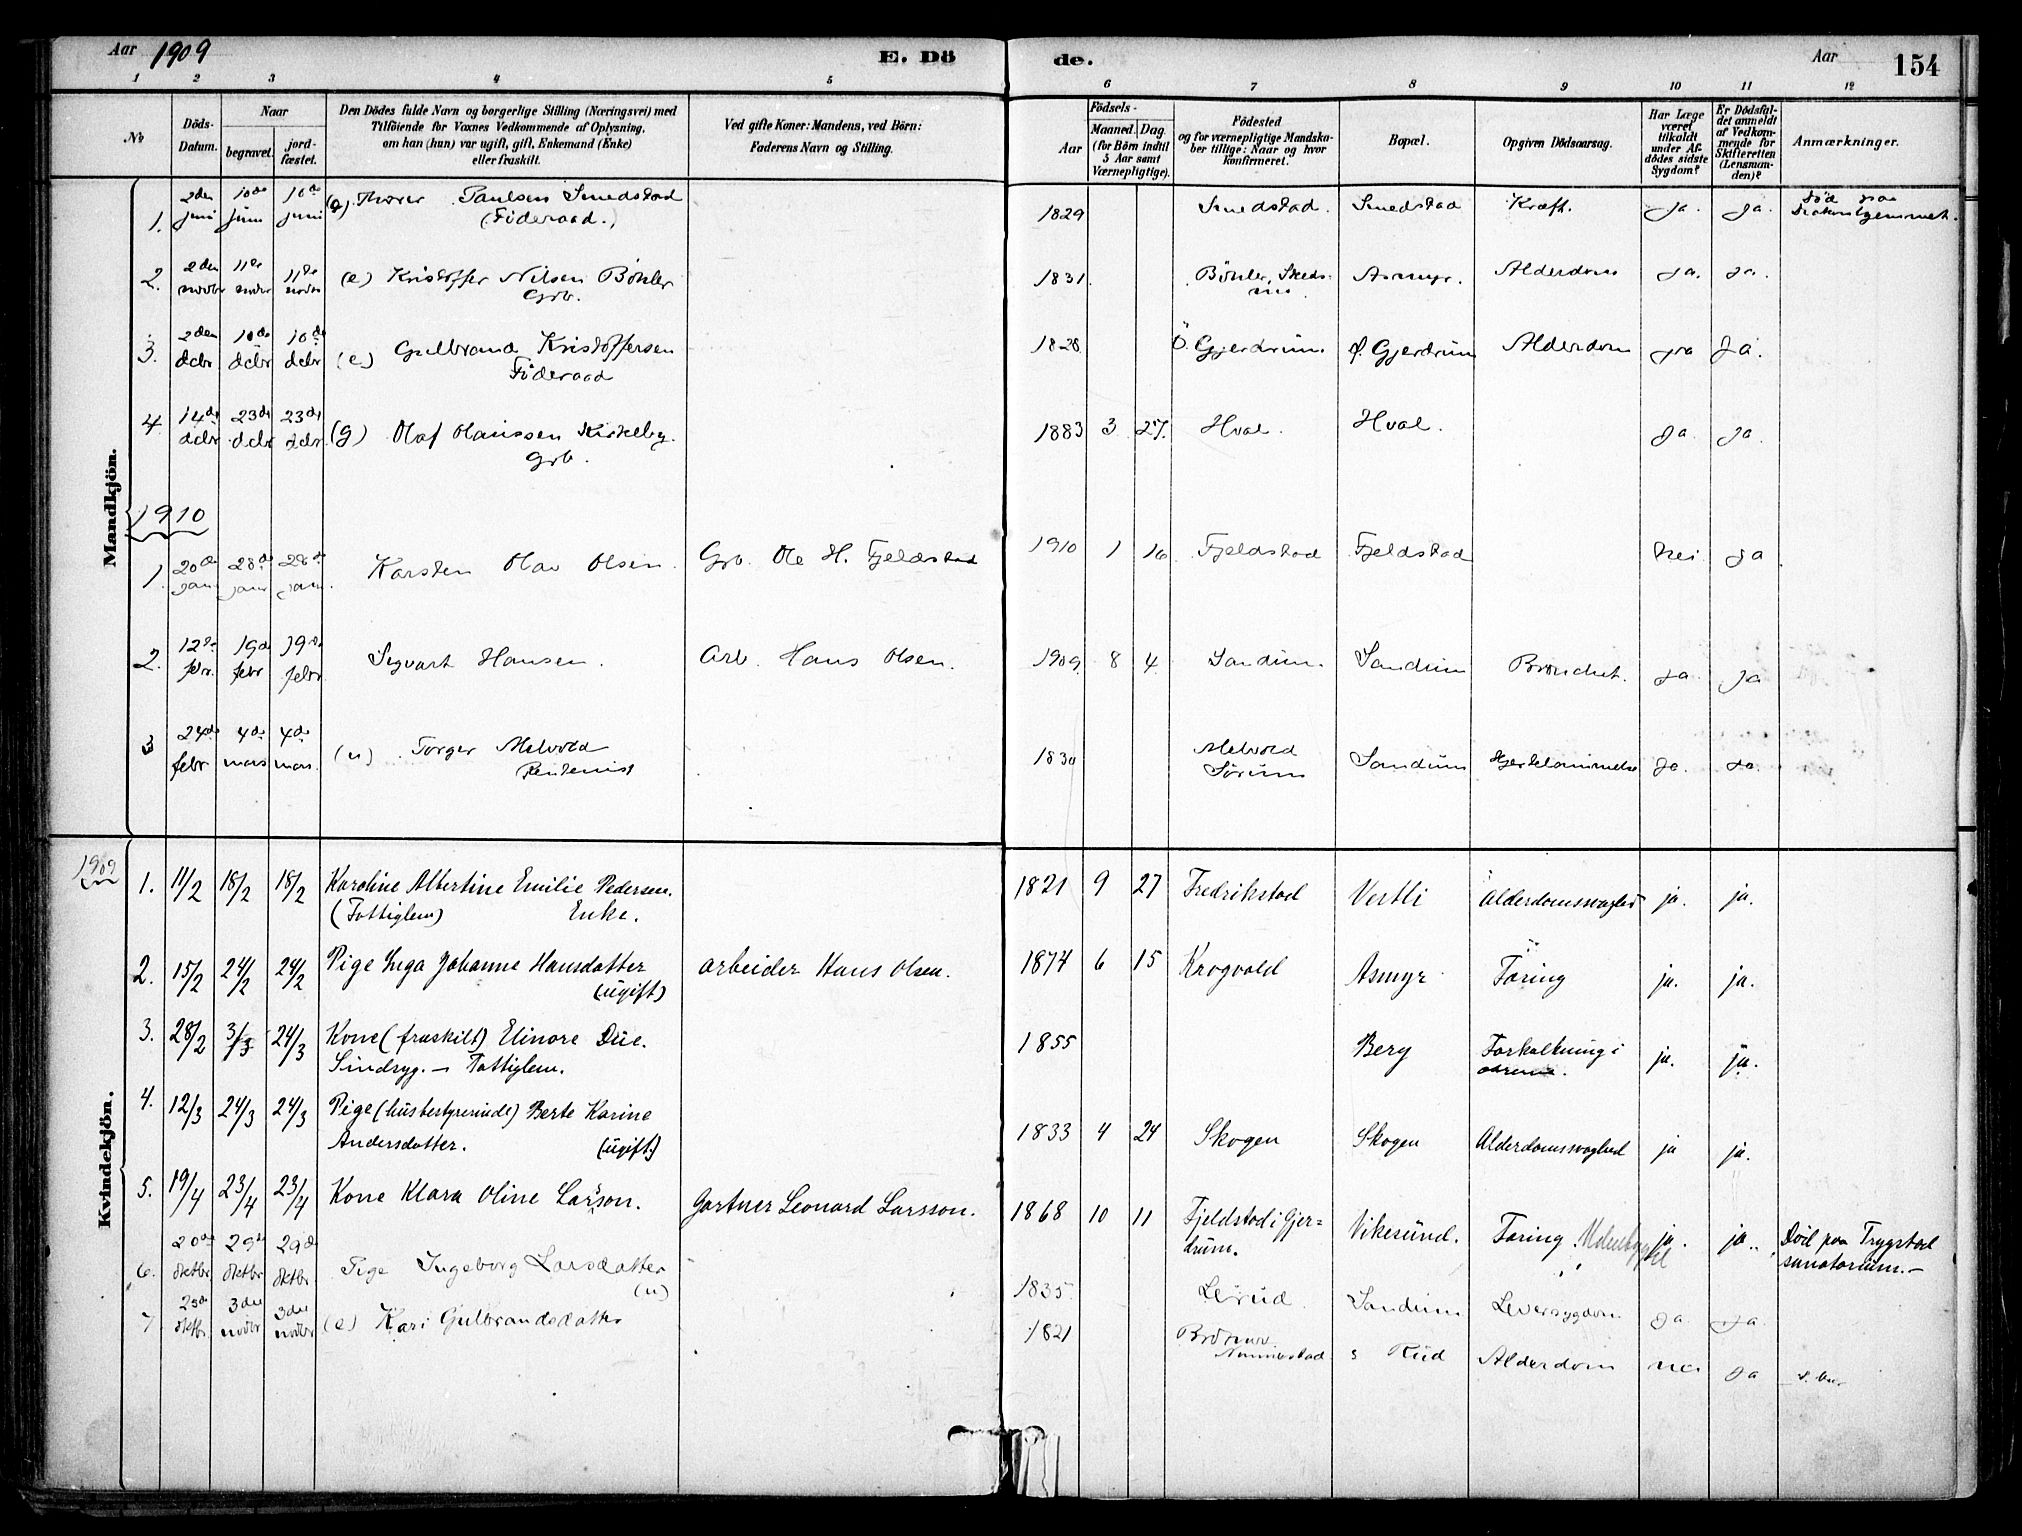 Aar 1909
E. Dö de.
Aar
154
1 2 3 4 5 6 7 8 9 10 11 12
No
Döds-Datum.
Naar
begravet.
jordfæstet.
Den Dödes fulde Navn og borgerlige Stilling (Næringsvei) med
Tilföiende for Voxnes Vedkommende af Oplysning,
om han (hun) var ugift, gift, Enkemand (Enke)
eller fraskilt.
Ved gifte Koner: Mandens, ved Börn:
Faderens Navn og Stilling.
Födsels-
Aar
Maaned. Dag.
(for Börn indtil
5 Aar samt
Værnepligtige).
Födested
og for værnepligtige Mandskaber tillige: Naar og hvor
Konfirmeret.
Bopæl.
Opgiven Dödsaarsag.
Har Læge
været
tilkaldt
under Afdödes sidste
Sygdom?
Er Dödsfaldet anmeldt
af Vedkommende for
Skifteretten
(Lensmanden)?
Anmærkninger.
Mandkjön.
1. 2den juni 10de juni 10de juni (g) Thorer Paulsen Smedstad (Föderaad.) 1829 Smedstad. Smedstad Kræft. ja. ja. Död paa
2. 2den novbr 11te novbr 11te novbr (e) Kristoffer Nilsen Böhler Grb. 1831 Böhler, Skedsmo Asmyr. Alderdom ja. ja.
3. 2den dcbr 10de dcbr 10de dcbr (e) Gulbrand Kristoffersen Föderaad 1828 Ö. Gjerdrum Ø. Gjerdrum Alderdom ja ja.
4 14de dcbr 23de dcbr 23de dcbr. (g) Olaf Olaussen Kirkeby. Grb. 1883 3 27. Hval. Hval. ja. ja.
1910
1. 20de jan 28de janr 28de jan. Karsten Olav Olsen. Grb. Ole H. Fjeldstad 1910 1 16 Fjeldstad Fjeldstad Nei ja
2. 12te febr. 19de febr 19de febr Sigvart Hansen. Arb. Hans Olsen. 1909 8 4. Sandum. Sandum Bronchit. ja. ja
3 24de febr 4de mars 4de mars. (u) Torger Melvold Rentenist 1830 Melvold Sörum Sandum Hjertelammelse ja. ja.
Kvindekjön.
1909
1. 11/2 18/2 18/2 Karoline Albertine Emilie Pedersen. (Fattiglem) Enke. 1821 9 27 Fredrikstad Vestli Alderdomssvaghed ja. ja.
2. 15/2 24/2 24/2 Pige Inga Johanne Hansdatter (ugift) arbeider Hans Olsen. 1874 6 15 Krogvold Asmyr Tæring ja. ja.
3. 28/2 3/3 24/3 Kone (fraskilt) Elinore Due. Sindsyg. — Fattiglem. 1855 Berg Forkalkning i aarene. ja. ja.
4. 12/3 24/3 24/3 Pige (husbestyrerinde) Berte Karine Andersdatter. (ugift) 1833 4 24 Skogen Skogen Alderdomssvaghed ja ja.
5. 19/4 23/4 23/4 Kone Klara Oline Larsson. Gartner Leonard Larsson. 1868 10 11 Fjeldstad i Gjerdrum. Vikesund. Tæring ja. ja. Död paa Trygstad sanatorium.—
6. 20de oktbr 29de oktbr 29de oktbr Pige Ingeborg Larsdatter (u) 1835 Lerud Sandum Leversygdom ja ja.
7 oktbr. 3die novbr 3die novbr (e) Kari Gulbrandsdatter 1821 Nannestad s Rud Alderdom nei ja